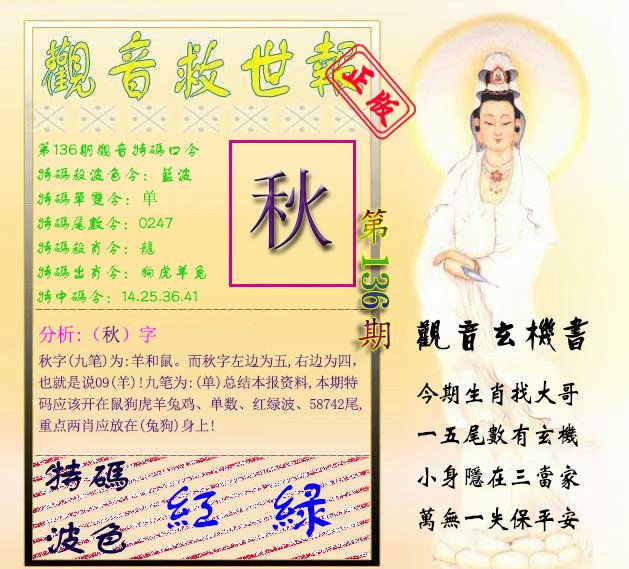 觀音救世報
正版
第136期觀音特碼口令
特碼殺波色令：藍波
特碼單雙令：单
特碼尾數令：0247
特碼殺肖令：龍
特碼出肖令：狗虎羊兔
特中碼令：14.25.36.41
秋
第136期
分析:（秋）字
秋字(九笔)为:羊和鼠。而秋字左边为五,右边为四,
也就是说09(羊)!九笔为:(单)总结本报资料,本期特
码应该开在鼠狗虎羊兔鸡、单数、红绿波、58742尾,
重点两肖应放在(兔狗)身上!
特碼
波色
紅 綠
觀音玄機書
今期生肖找大哥
一五尾數有玄機
小身隱在三當家
萬無一失保平安